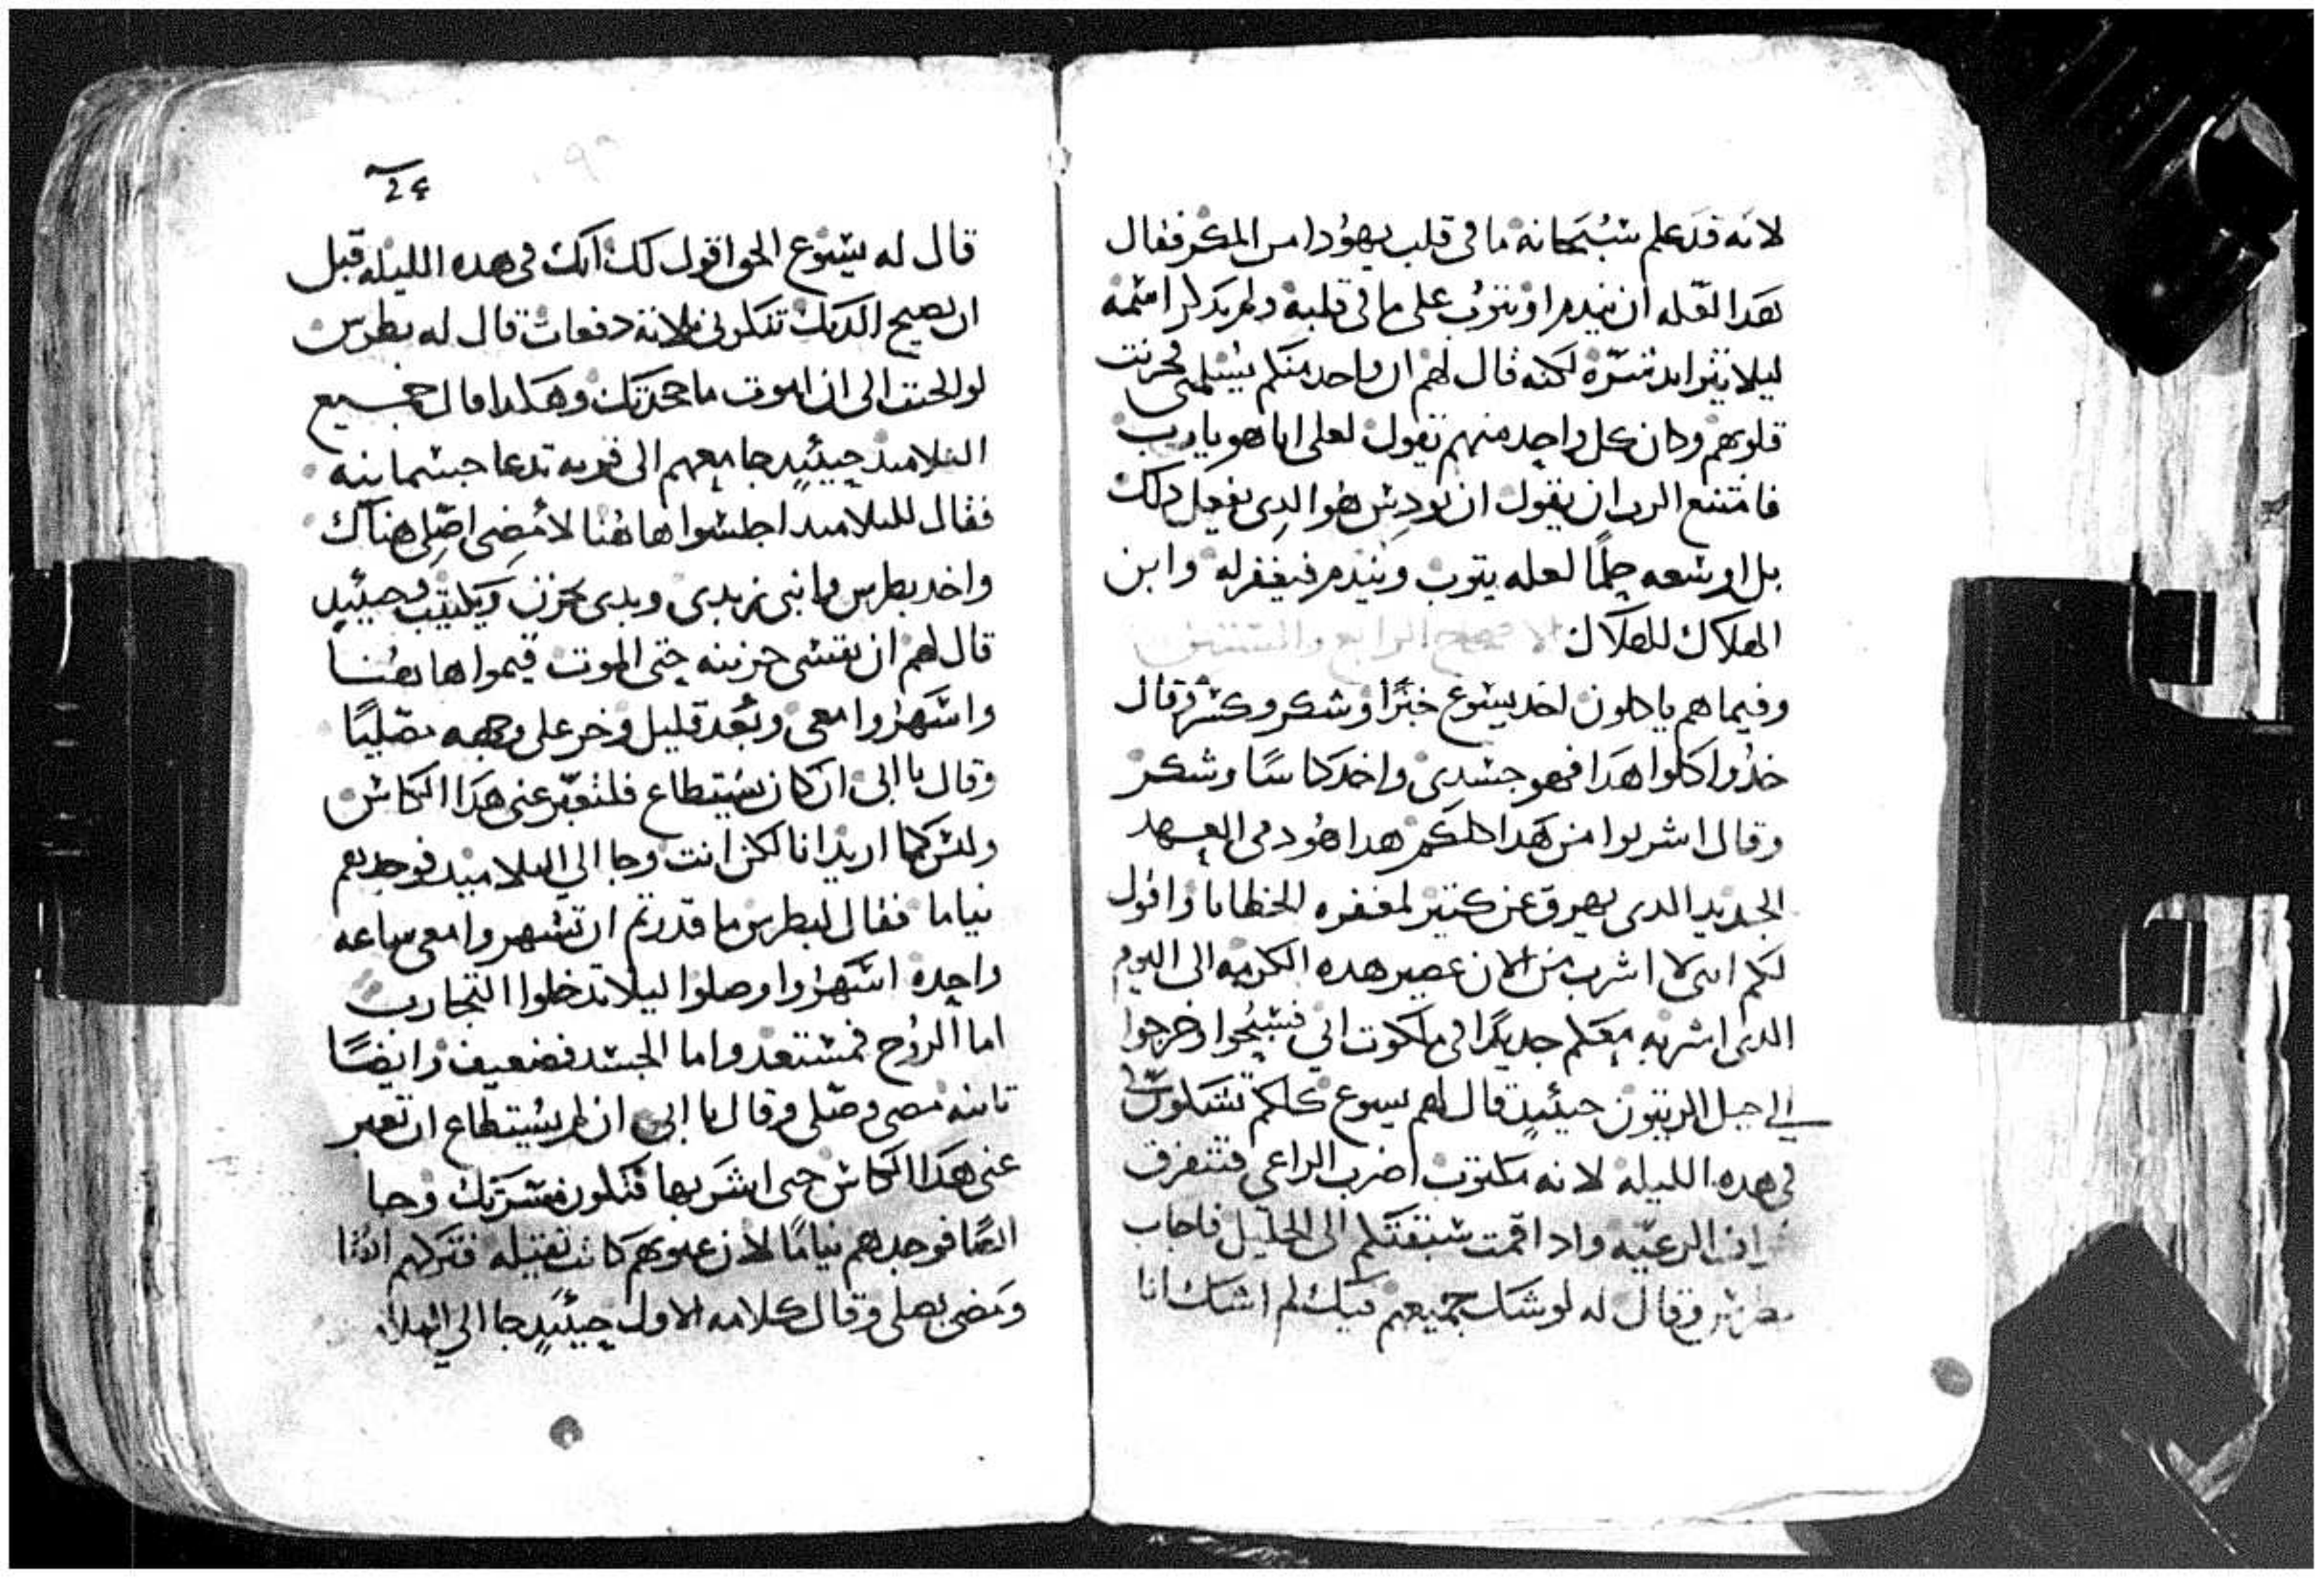 لانه قد علم سبحانه ما فى قلب يهودا من المكر فقال
هدا لعله ان يندم او يتوب على ما فى قلبه ولم يدكر اسمه
ليلا يتزايد شره لكنه قال لهم ان واحد منكم يسلمنى فحزنت
قلوبهم وكان كل واحد منهم يقول لعلى انا هو يارب
فامتنع الرب ان يقول ان يودس هو الدى يفعل دلك
بل اوسعه حلمًا لعله يتوب ويندم فيغفر له وابن
الهلاك للهلاك الاصحاح الرابع والستين
وفيما هم ياكلون اخد يسوع خبزًا وشكر وكسر وقال
خدوا كلوا هدا فهو جسدى واخد كاسًا وشكر
وقال اشربوا من هدا كلكم هدا هو دمى العهد
الجديد الدى يهرق عن كتير لمغفره الخطايا واقول
لكم انى لا اشرب من الان عصير هده الكرمه الى اليوم
الدى اشربه معكم جديدًا فى ملكوت ابي فسبحوا وخرجوا
الي جبل الزيتون حينيدٍ قال لهم يسوع كلكم تشكون
فى هده الليله لانه مكتوب اضرب الراعى فتتفرق
الرعيه وادا قمت سبقتكم الى الجليل فاجاب
بطرس وقال له لو شك جميعهم فيك لم اشك انا
24
قال له يسوع الحق اقول لك انك فى هده الليله قبل
ان يصيح الديك تنكرنى تلاتة دفعات قال له بطرس
لو الجيت الى ان اموت ما جحدتك وهكدا قال جميع
التلاميد حينيدٍ جا معهم الى قريه تدعا جسمانيه
فقال للتلاميد اجلسوا هاهنا لامضى اصلى هناك
واخد بطرس وابنى زبدى وبدى يحزن ويكتيب وحينيدٍ
قال لهم ان نفسى حزينه حتى الموت قيموا هاهنا
واسهروا معى وبعد قليل وخر على وجهه مصليًا
وقال يا ابى ان كان يستطاع فلتعبر عنى هدا الكاس
وليس كما اريد انا لكن انت وجا الي التلاميد فوجدهم
نياما فقال لبطرس ما قدرتم ان تسهروا معى ساعه
واحده اسهروا وصلوا ليلا تدخلوا التجارب
اما الروح فمستعد واما الجسد فضعيف وايضًا
تانيه مضى وصلى وقال يا ابى ان لم يستطاع ان تعبر
عنى هدا الكاس حتى اشربها فتكون مسرتك وجا
ايضًا فوجدهم نيامًا لان عيونهم كانت تقيله فتركهم ايضًا
ومضى يصلى وقال كلامه الاول حينيدٍ جا الي التلا